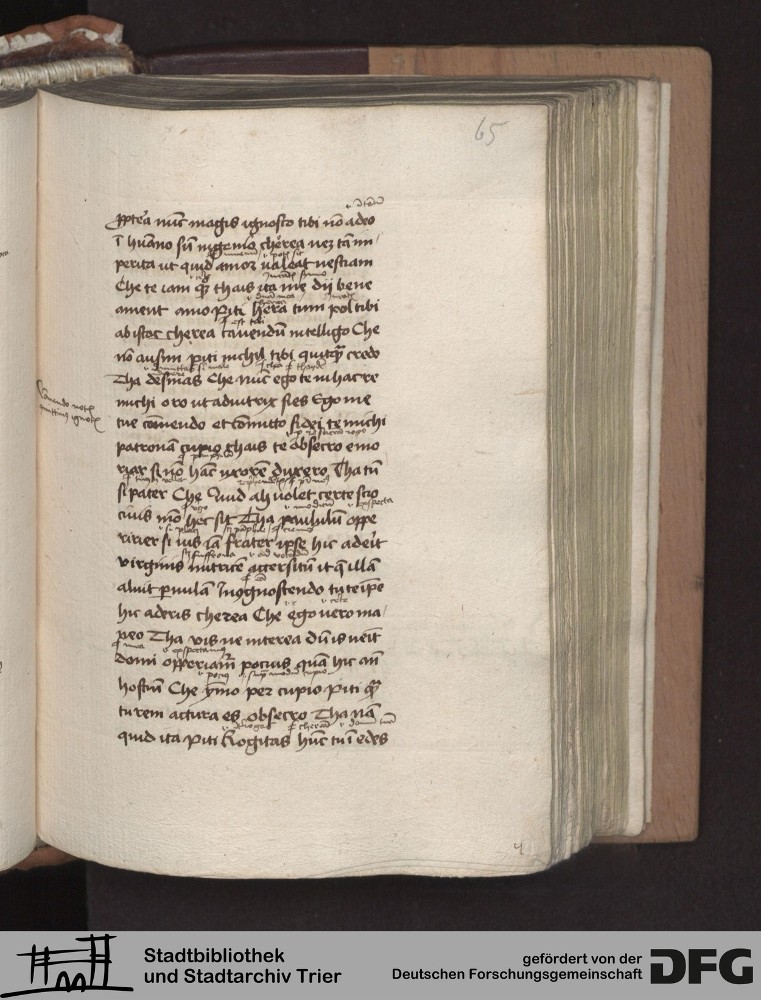 65
ppterea nunc magis ignosco tibi nō adeo
ī hūano sū ingenio cherea nez tā im
perita ut quid amor valeat nesciam
Che te iam qz thais ita me dij bene
ament amo Piti hera tum pol tibi
ab istoc cherea cavendū intelligo Che
nō ausim Piti nichil tibi quitqz credo
Tha desinas Che nūc ego te in hac re
michi oro ut adiutrix sies Ego me
tue cōmendo et cōmitto fidei te michi
patronā cupio thais te obsecro emo
riar si nō hāc uxorē duxero Tha tū
si pater Che quid ah volet certe scio
civis mō hec sit Tha paululū oppe
ririer si vis iā frater ipse hic aderit
virginis nutricē accersitū it q̄ illā
aluit pvulā In cognoscendo tu te ipe
hic aderis cherea Che ego vero ma
neo Tha vis ne interea dū is veit
domi opperiam̄ pocius quā hic an̄
hostiū Che ymo per cupio Piti quā
tu rem actura es obsecro Tha nā
quid ita Piti Rogitas hūc tu ī edes
Stadtbibliothek
und Stadtarchiv Trier
gefördert von der
Deutschen Forschungsgemeinschaft
DFG